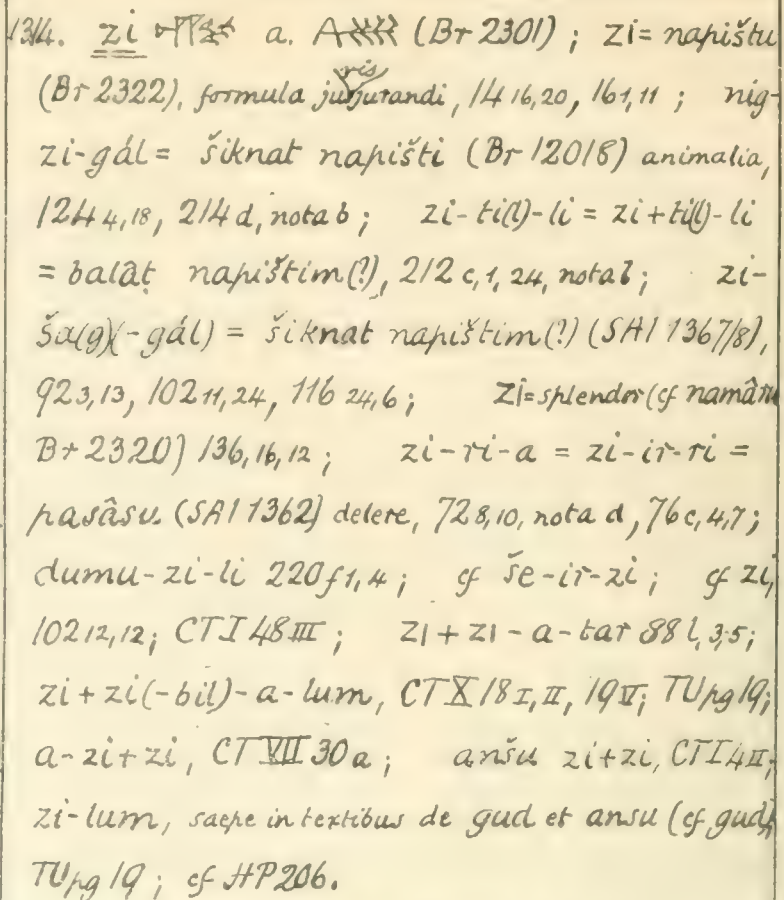 134. zi a. (Br 2301); zi = napištu
(Br 2322), formula jurisjurandi, 14 16,20, 16 1,11; nig-
zi-gál = šiknat napišti (Br 12018) animalia,
124 4,18, 214 d, nota b; zi-ti(l)-li = zi+ti(l)-li
= balâṭ napištim(?), 212 c, 1, 24, nota l; zi-
ša(g)(-gál) = šiknat napištim(?) (SAI 1367/8),
92 3,13, 102 11,24, 116 24,6; zi = splendor (cf namâru
Br 2320) 136, 16, 12; zi-ri-a = zi-ir-ri =
pasâsu (SAI 1362) delere, 72 8,10, nota d, 76 c, 4,7;
dumu-zi-li 220 f 1,4; cf še-ir-zi; cf zi,
102 12,12; CT I 48 III; zi+zi-a-tar 88 l, 3,5;
zi+zi(-bil)-a-lum, CT X 18 I, II, 19 V; TU pg 19;
a-zi+zi, CT VII 30 a; anšu zi+zi, CT I 4 II;
zi-lum, saepe in textibus de gud et ansu (cf gud),
TU pg 19; cf HP 206.